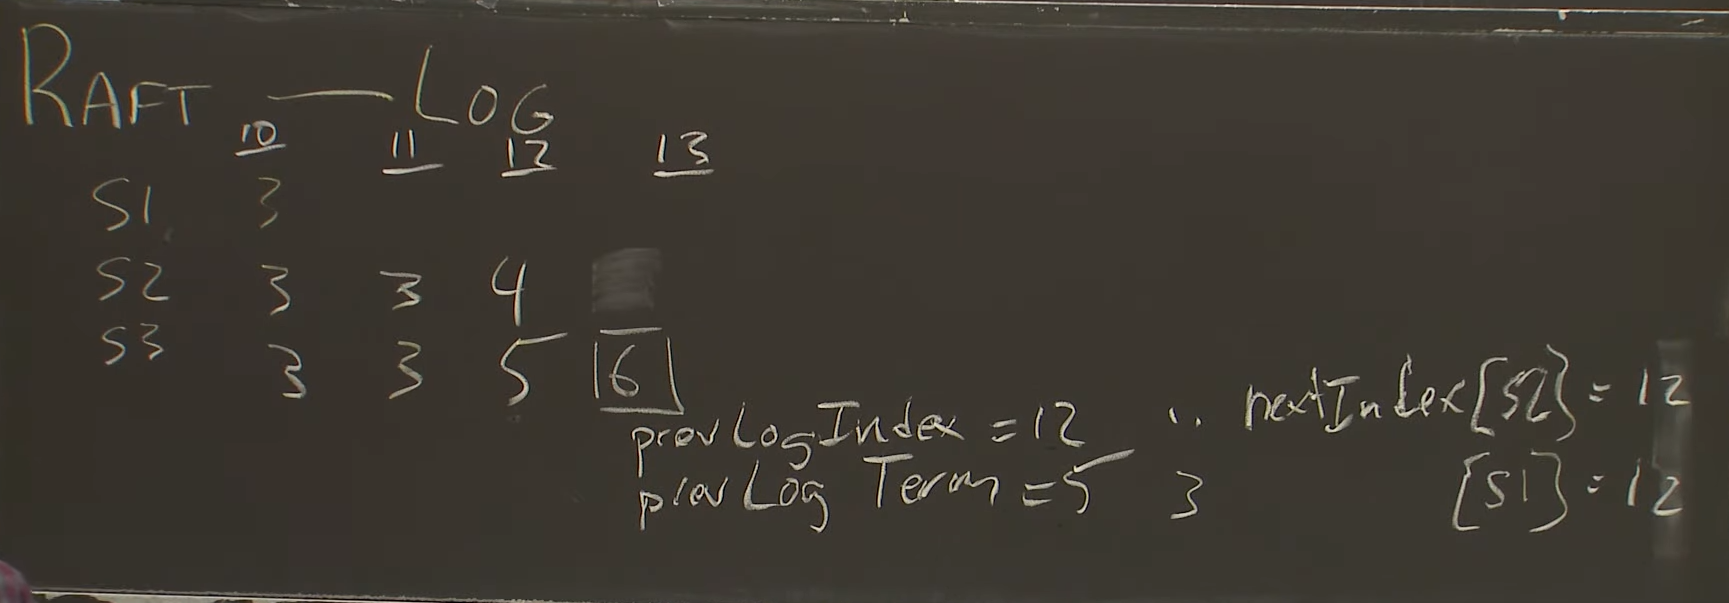 RAFT — LOG
10 11 12 13
S1 3
S2 3 3 4
S3 3 3 5 6
prevLogIndex = 12 11 nextIndex[S2] = 12
prevLogTerm = 5 3 [S1] = 12